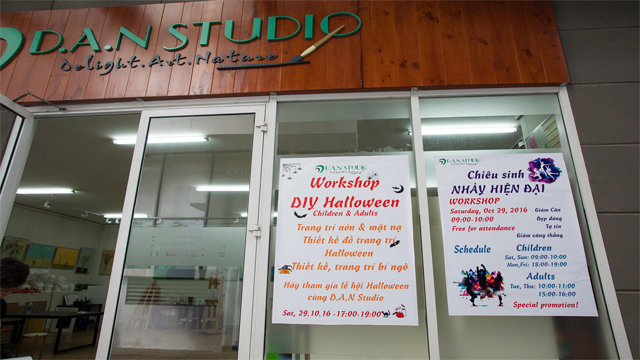 D.A.N STUDIO
Delight.Art.Nature
D.A.N STUDIO
Workshop
DIY Halloween
Children & Adults
Trang trí nón & mặt nạ
Thiết kế đồ trang trí
Halloween
Thiết kế, trang trí bí ngô
Hãy tham gia lễ hội Halloween
cùng D.A.N Studio
Sat, 29.10.16 -17:00-19:00
D.A.N STUDIO
Chiêu sinh
NHẢY HIỆN ĐẠI
WORKSHOP
Saturday, Oct 29, 2016
09:00-10:00
Free for attendance
Giảm Cân
Đẹp dáng
Tự tin
Giảm căng thẳng
Schedule
Children
Sat, Sun: 09:00-10:00
Mon,Fri: 18:00-19:00
Adults
Tue, Thu: 10:00-11:00
15:00-16:00
Special promotion!